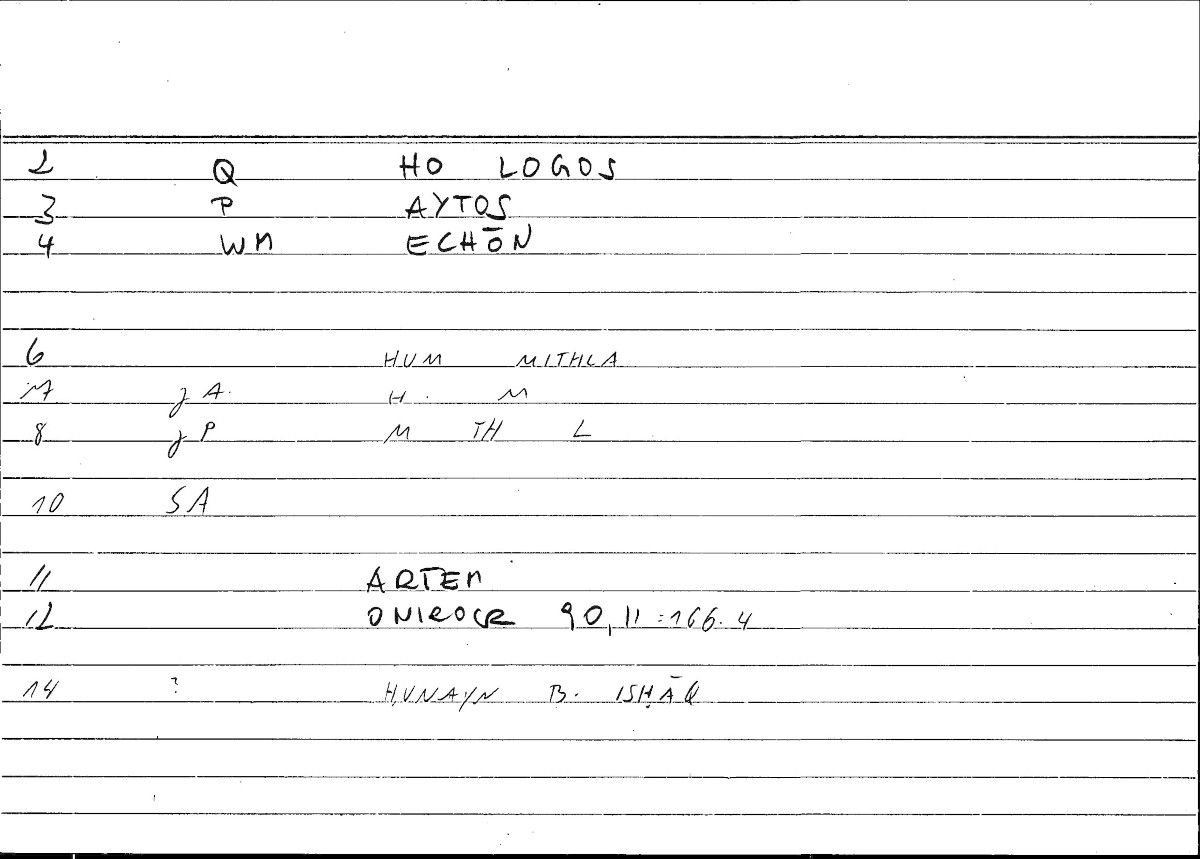 2 Q HO LOGOS
3 P AYTOS
4 WM ECHŌN
6 HUM MITHLA
7 JA. H. M
8 JP M TH L
10 SA
11 ARTEM
12 ONIROCR 90,11:166.4
14 ? ḤUNAYN B. ISḤĀQ